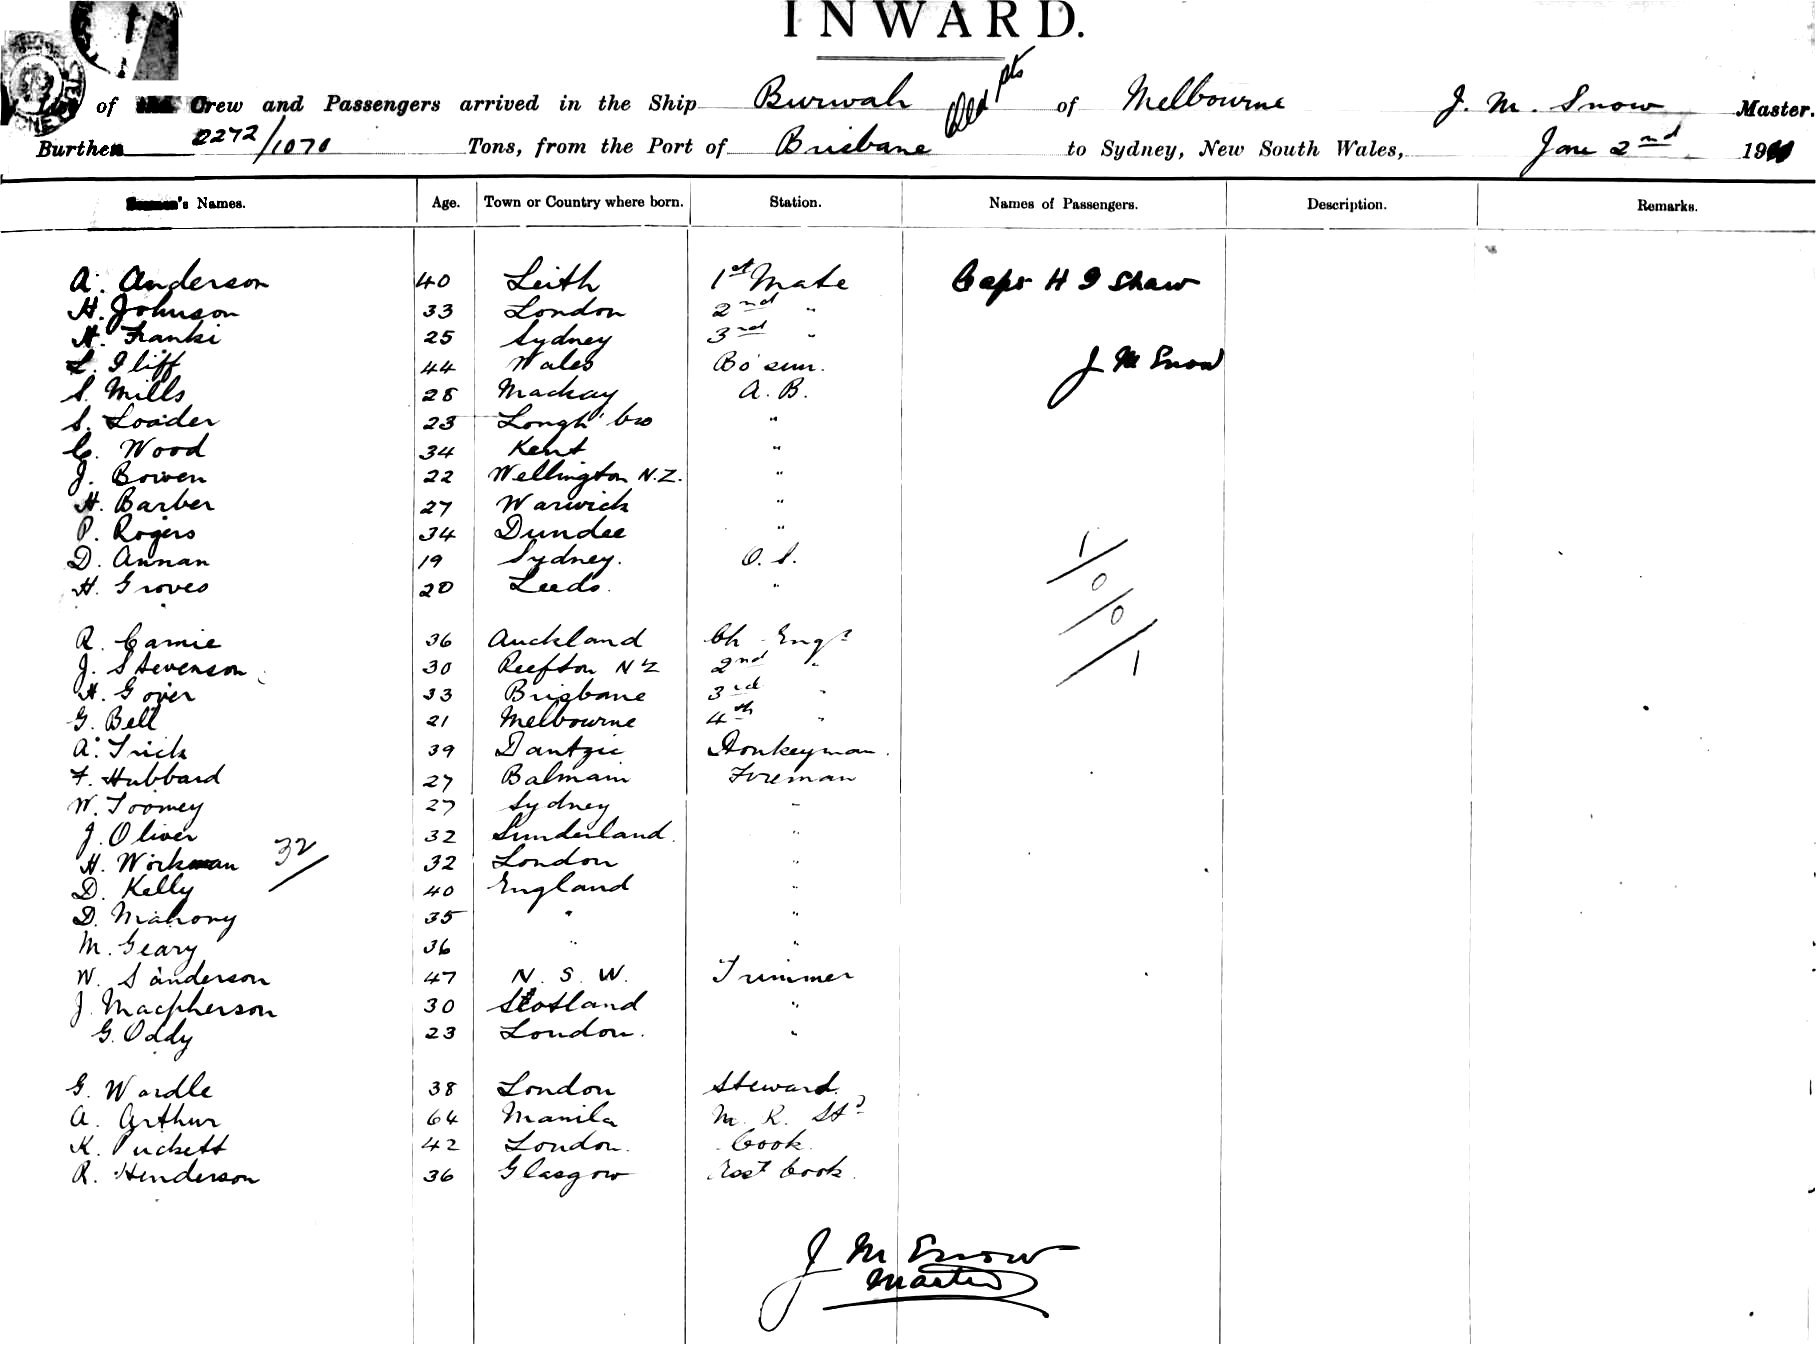 INWARD.
of Crew and Passengers arrived in the Ship Burwah of Melbourne J. M. Snow Master.
Burthen 2272/1070 Tons, from the Port of Brisbane to Sydney, New South Wales, June 2nd 19
's Names. Age. Town or Country where born. Station. Names of Passengers. Description. Remarks.
A. Anderson 40 Leith 1st Mate Capt H I Shaw
H. Johnson 33 London 2nd "
H. Franki 25 Sydney 3rd "
L. Iliff 44 Wales Bo'sun. J M Snow
S. Mills 28 Mackay A. B.
S. Loader 23 Lough'bro "
C. Wood 34 Kent "
J. Bowen 22 Wellington N.Z. "
H. Barber 27 Warwick "
P. Rogers 34 Dundee "
D. Annan 19 Sydney. O. S.
H. Groves 20 Leeds. "
1/0/0/1
R. Camie 36 Auckland Ch Engr
J. Stevenson 30 Reefton N Z 2nd "
H. Gover 33 Brisbane 3rd "
G. Bell 21 Melbourne 4th "
A. Trick 39 Dantzic Donkeyman.
F. Hubbard 27 Balmain Fireman
W. Toomey 27 Sydney "
J. Oliver 32 Sunderland. "
H. Workman 32/ 32 London "
D. Kelly 40 England "
D. Mahony 35 " "
M. Geary 36 " "
W. Sanderson 47 N. S. W. Trimmer
J. Macpherson 30 Scotland "
G. Oddy 23 London. "
G. Wardle 38 London Steward.
A. Arthur 64 Manila M. R. Std
K. Puckett 42 London. Cook.
R. Henderson 36 Glasgow Asst Cook.
J M Snow
Master